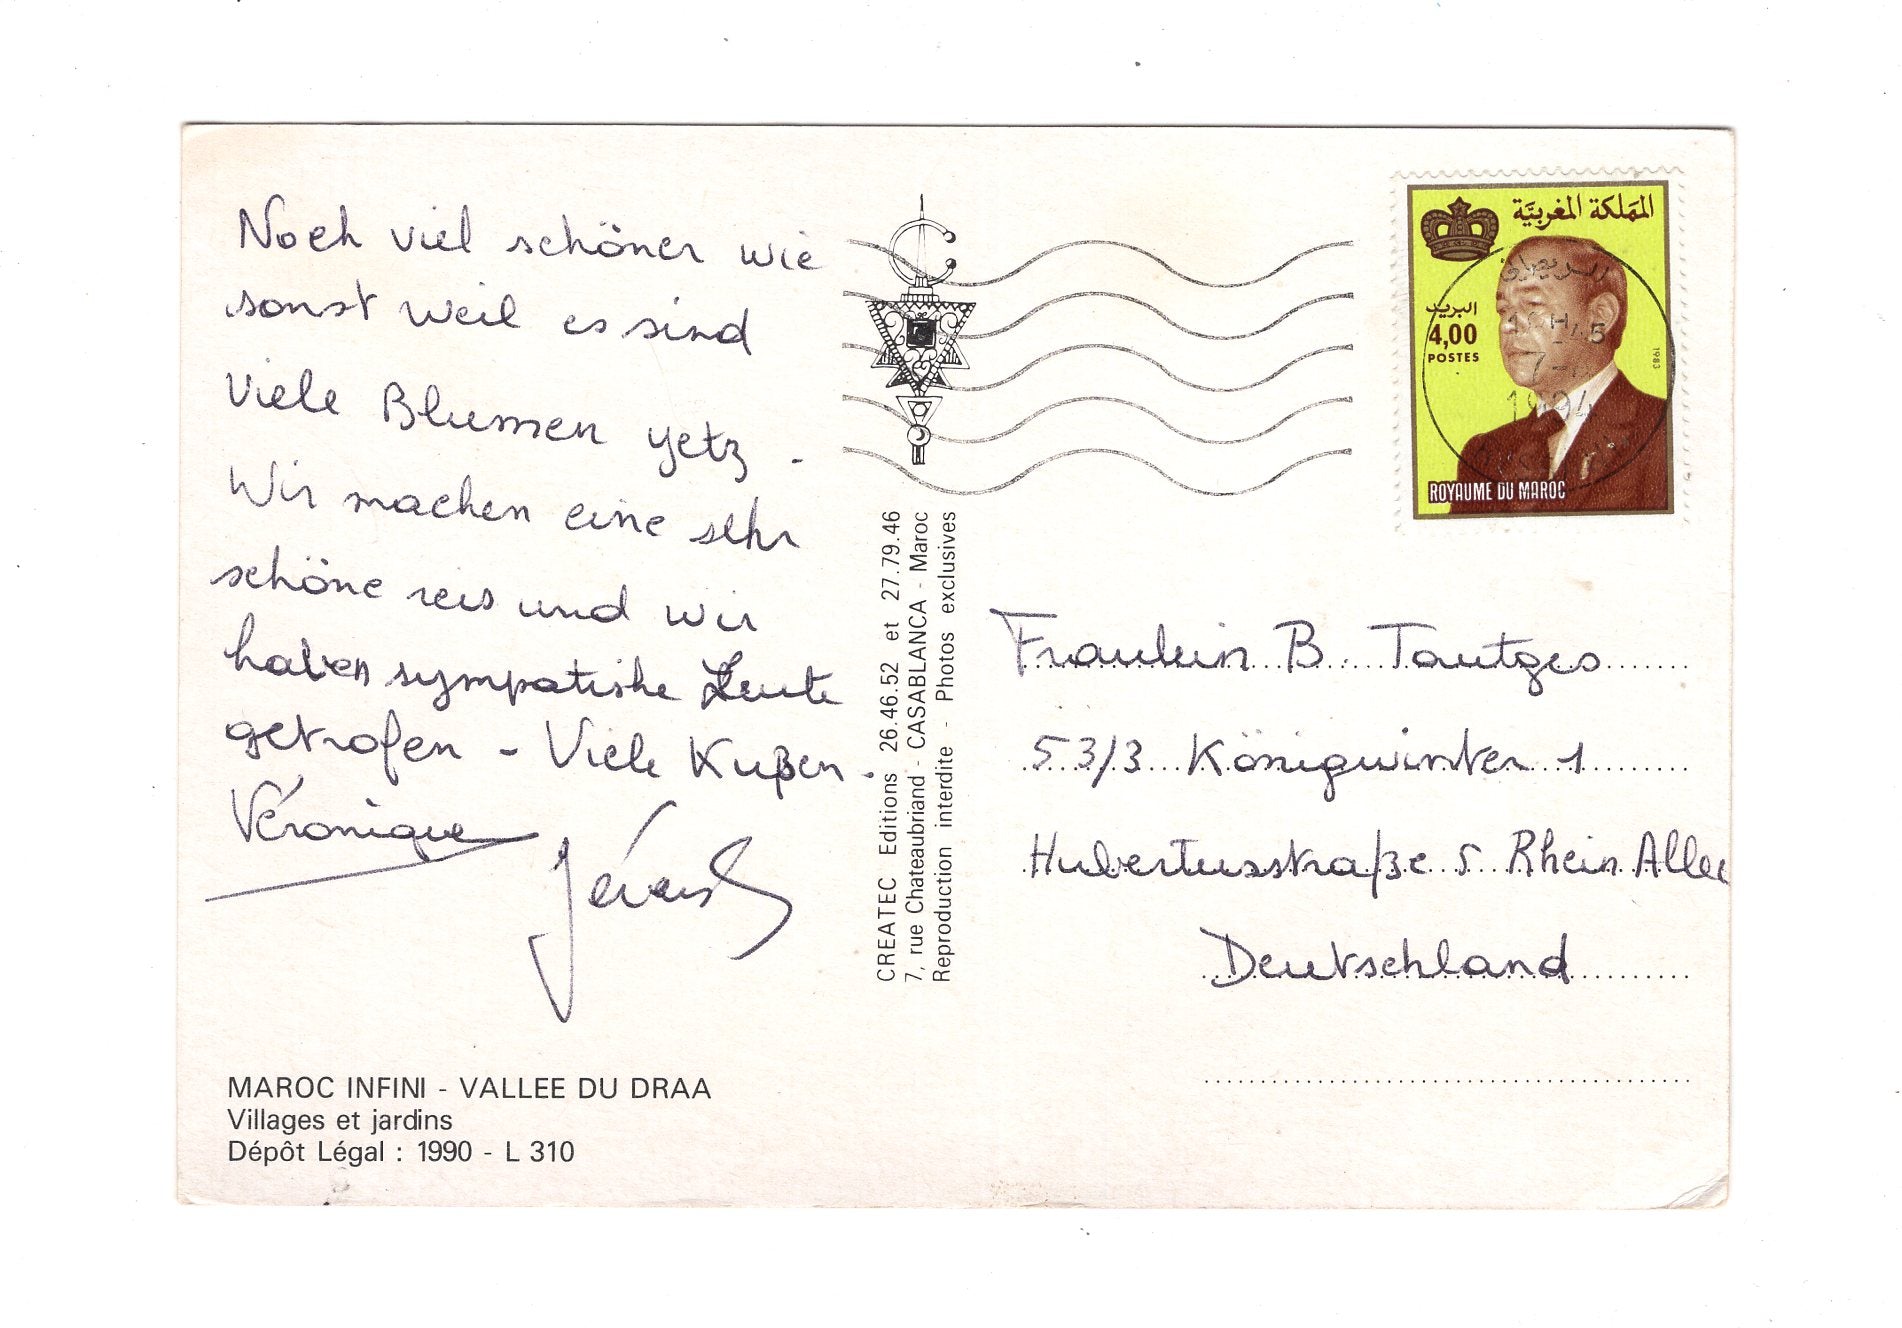 Noch viel schöner wie
sonst weil es sind
Viele Blumen yetz.
Wir machen eine sehr
schöne reis und wir
haben sympatishe Leute
getrofen - Viele Kußen.
Véronique
CREATEC Editions 26.46.52 et 27.79.46
7, rue Chateaubriand - CASABLANCA - Maroc
Reproduction interdite - Photos exclusives
المملكة المغربية
البريد
4,00
POSTES
1983
1994
ROYAUME DU MAROC
Fraulein B. Tautges
53/3 Königwinter 1
Hubertusstraße 5 Rhein Allee
Deutschland
MAROC INFINI - VALLEE DU DRAA
Villages et jardins
Dépôt Légal : 1990 - L 310